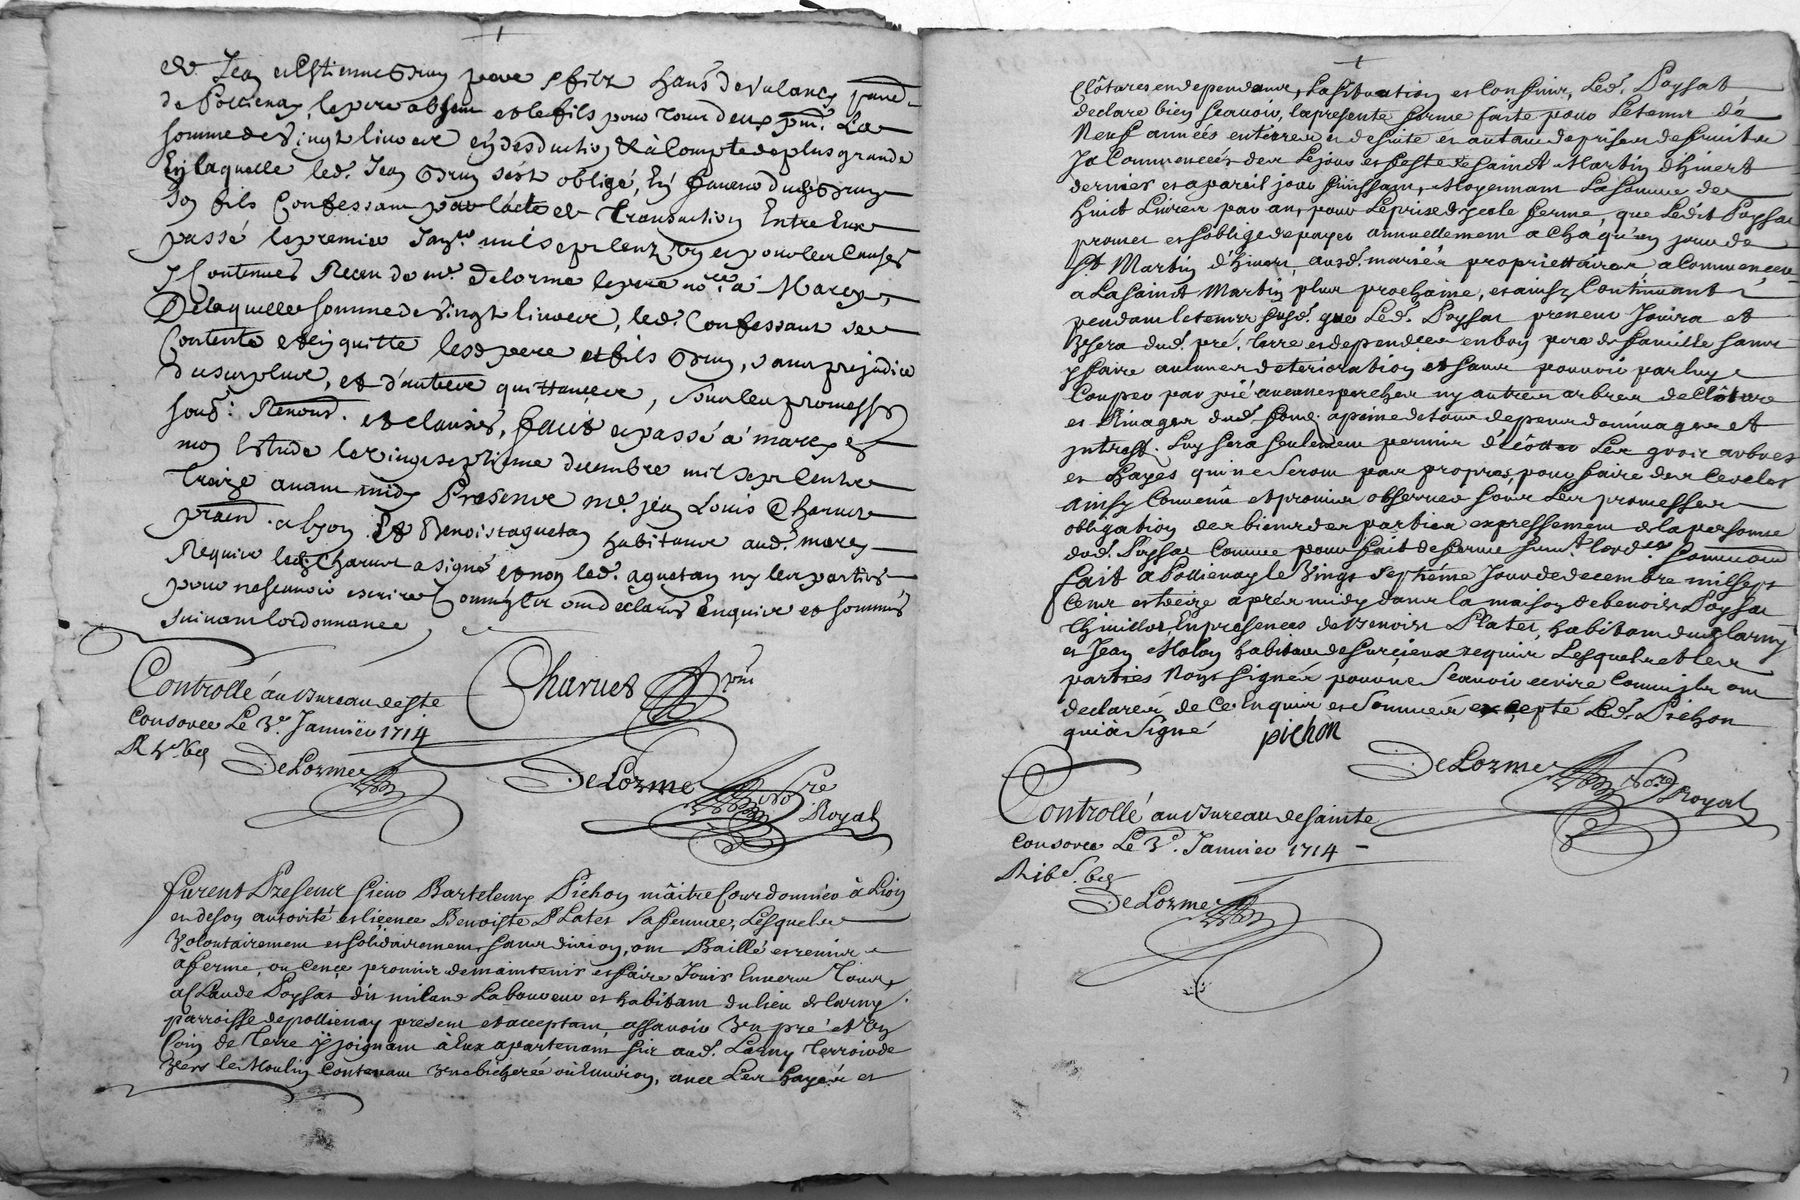 de Jean et Estienne Grun pere et fils habs de Valancy
de Pollienay, le pere absent et le fils pour tous deux pnt. La
somme de vingt livres en desduction & à Compte de plus grande
En laquelle led. Jean Grun s'est obligé, En faveur dud. Grun
son fils Confessant par l'acte de Transaction Entre Eux
passé le premier Janr. mil sept cent et pour les Causes
y Contenues Receu de me. Delorme le pere nore. à Marcy,
De laquelle somme de vingt livres, led. Confessant se
Contente et en quitte lesd. pere et fils Grun, sans prejudice
du surplus, et d'autres quittances, sous les promesses
Renond. et clauses, fait et passé à marcy
mon Estude le vingt septieme decembre mil sept cent
treize avant midy Presence me. jean Louis Charuet
pratid. a lyon Et Benoist aguetan habitant aud. marcy
Requis led. Charuet a signé et non led. aguetan ny les parties
pour ne scavoir escrire Comm'ils ont declarés Enquis et sommés
suivant lordonnance
Controllé au Bureau de Ste
Consorce Le 3e. Janvier 1714
R
DeLorme
Charuet pnt
DeLorme Nore Royal
furent Presens sieur Bartelemy Pichon maitre Courdonnier à Lion
et de son autorité et licence Benoiste Platet sa femme, Lesquels
Volontairement et solidairement sans division, ont Baillé et remis
à ferme, ou Cence promis de maintenir et faire Jouir Envers Tous
a Claude Poysat dit milane Laboureur et habitant du lieu de Larny
parroisse de pollienay present et acceptant, assavoir Un pré et Un
Coin de Terre Y joignant à Eux apartenant sis aud. Larny Terroir de
Vers le Moulin Contenant Une bicherée ou Environ, avec Les hayes et
Clôtures en dependant, La situation et Confins, Led. Poysat
declare bien scavoir, la presente ferme faite pour Le temps de
Neuf années entieres et de suite et autant de prises de fruits
Ja Commencées des Le jour et feste de saint Martin d'hivert
dernier et a pareil jour finissant, Moyennant La somme de
huict Livres par an, pour Le prise d'ycelle ferme, que Ledit Poysat
promet et s'oblige de payer annuellement a Chaqu'un jour de
St. Martin d'hivert, ausd. mariés propriettaires a Commencer
a La saint Martin plus prochaine, et ainsy Continuant
pendant le temps susd. que Led. Poysat preneur Jouira et
Usera dud. pré, terre et dependces en bon pere de famille sans
y faire aucunes deterioration et sans pouvoir par luy
Couper par pié aucunes percher ny autres arbres de Clôture
et Ainages dud. fond. a peine de tous depens dommages et
jnterest. Luy sera seulement permis d'ecôtter Les gros arbres
et hayes qui ne seront pas propres, pour faire des Cercles
ainsy Convenu et promis observer sous Les promesses
obligation des biens des parties expressement de la personne
dud. Poysat Comme pour fait de ferme suivt. lordce
fait a Pollienay le Vingt Septiéme Jour de decembre mil sept
Cent et treize aprés midy dans la maison de benoist Poysat
thuillot, En presences de Benoist Platet, habitant dud. Larny
et Jean Molon habitant de surcieux requis Lesquels et Les
parties N'ont signés pour ne scavoir ecrire Comm'ils ont
declarés de Ce Enquis et Sommés excepté Led. Pichon
qui a Signé
pichon
DeLorme Nore Royal
Controllé au Bureau de sainte
Consorce Le 3e. Janvier 1714
DeLorme